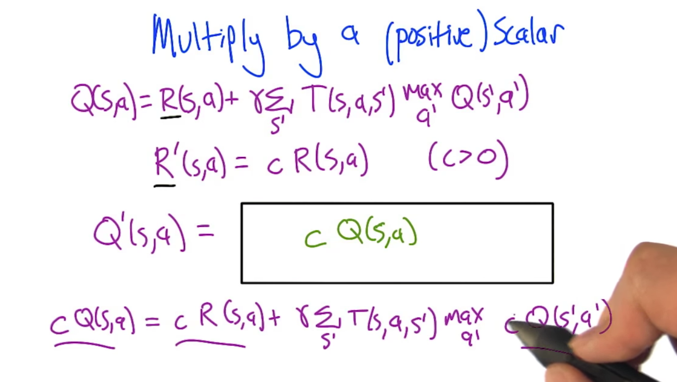 Multiply by a (positive) Scalar
Q(s,a) = R(s,a) + γ Σ_{s'} T(s,a,s') max_{a'} Q(s',a')
R'(s,a) = c R(s,a) (c>0)
Q'(s,a) = c Q(s,a)
c Q(s,a) = c R(s,a) + γ Σ_{s'} T(s,a,s') max_{a'} c Q(s',a')